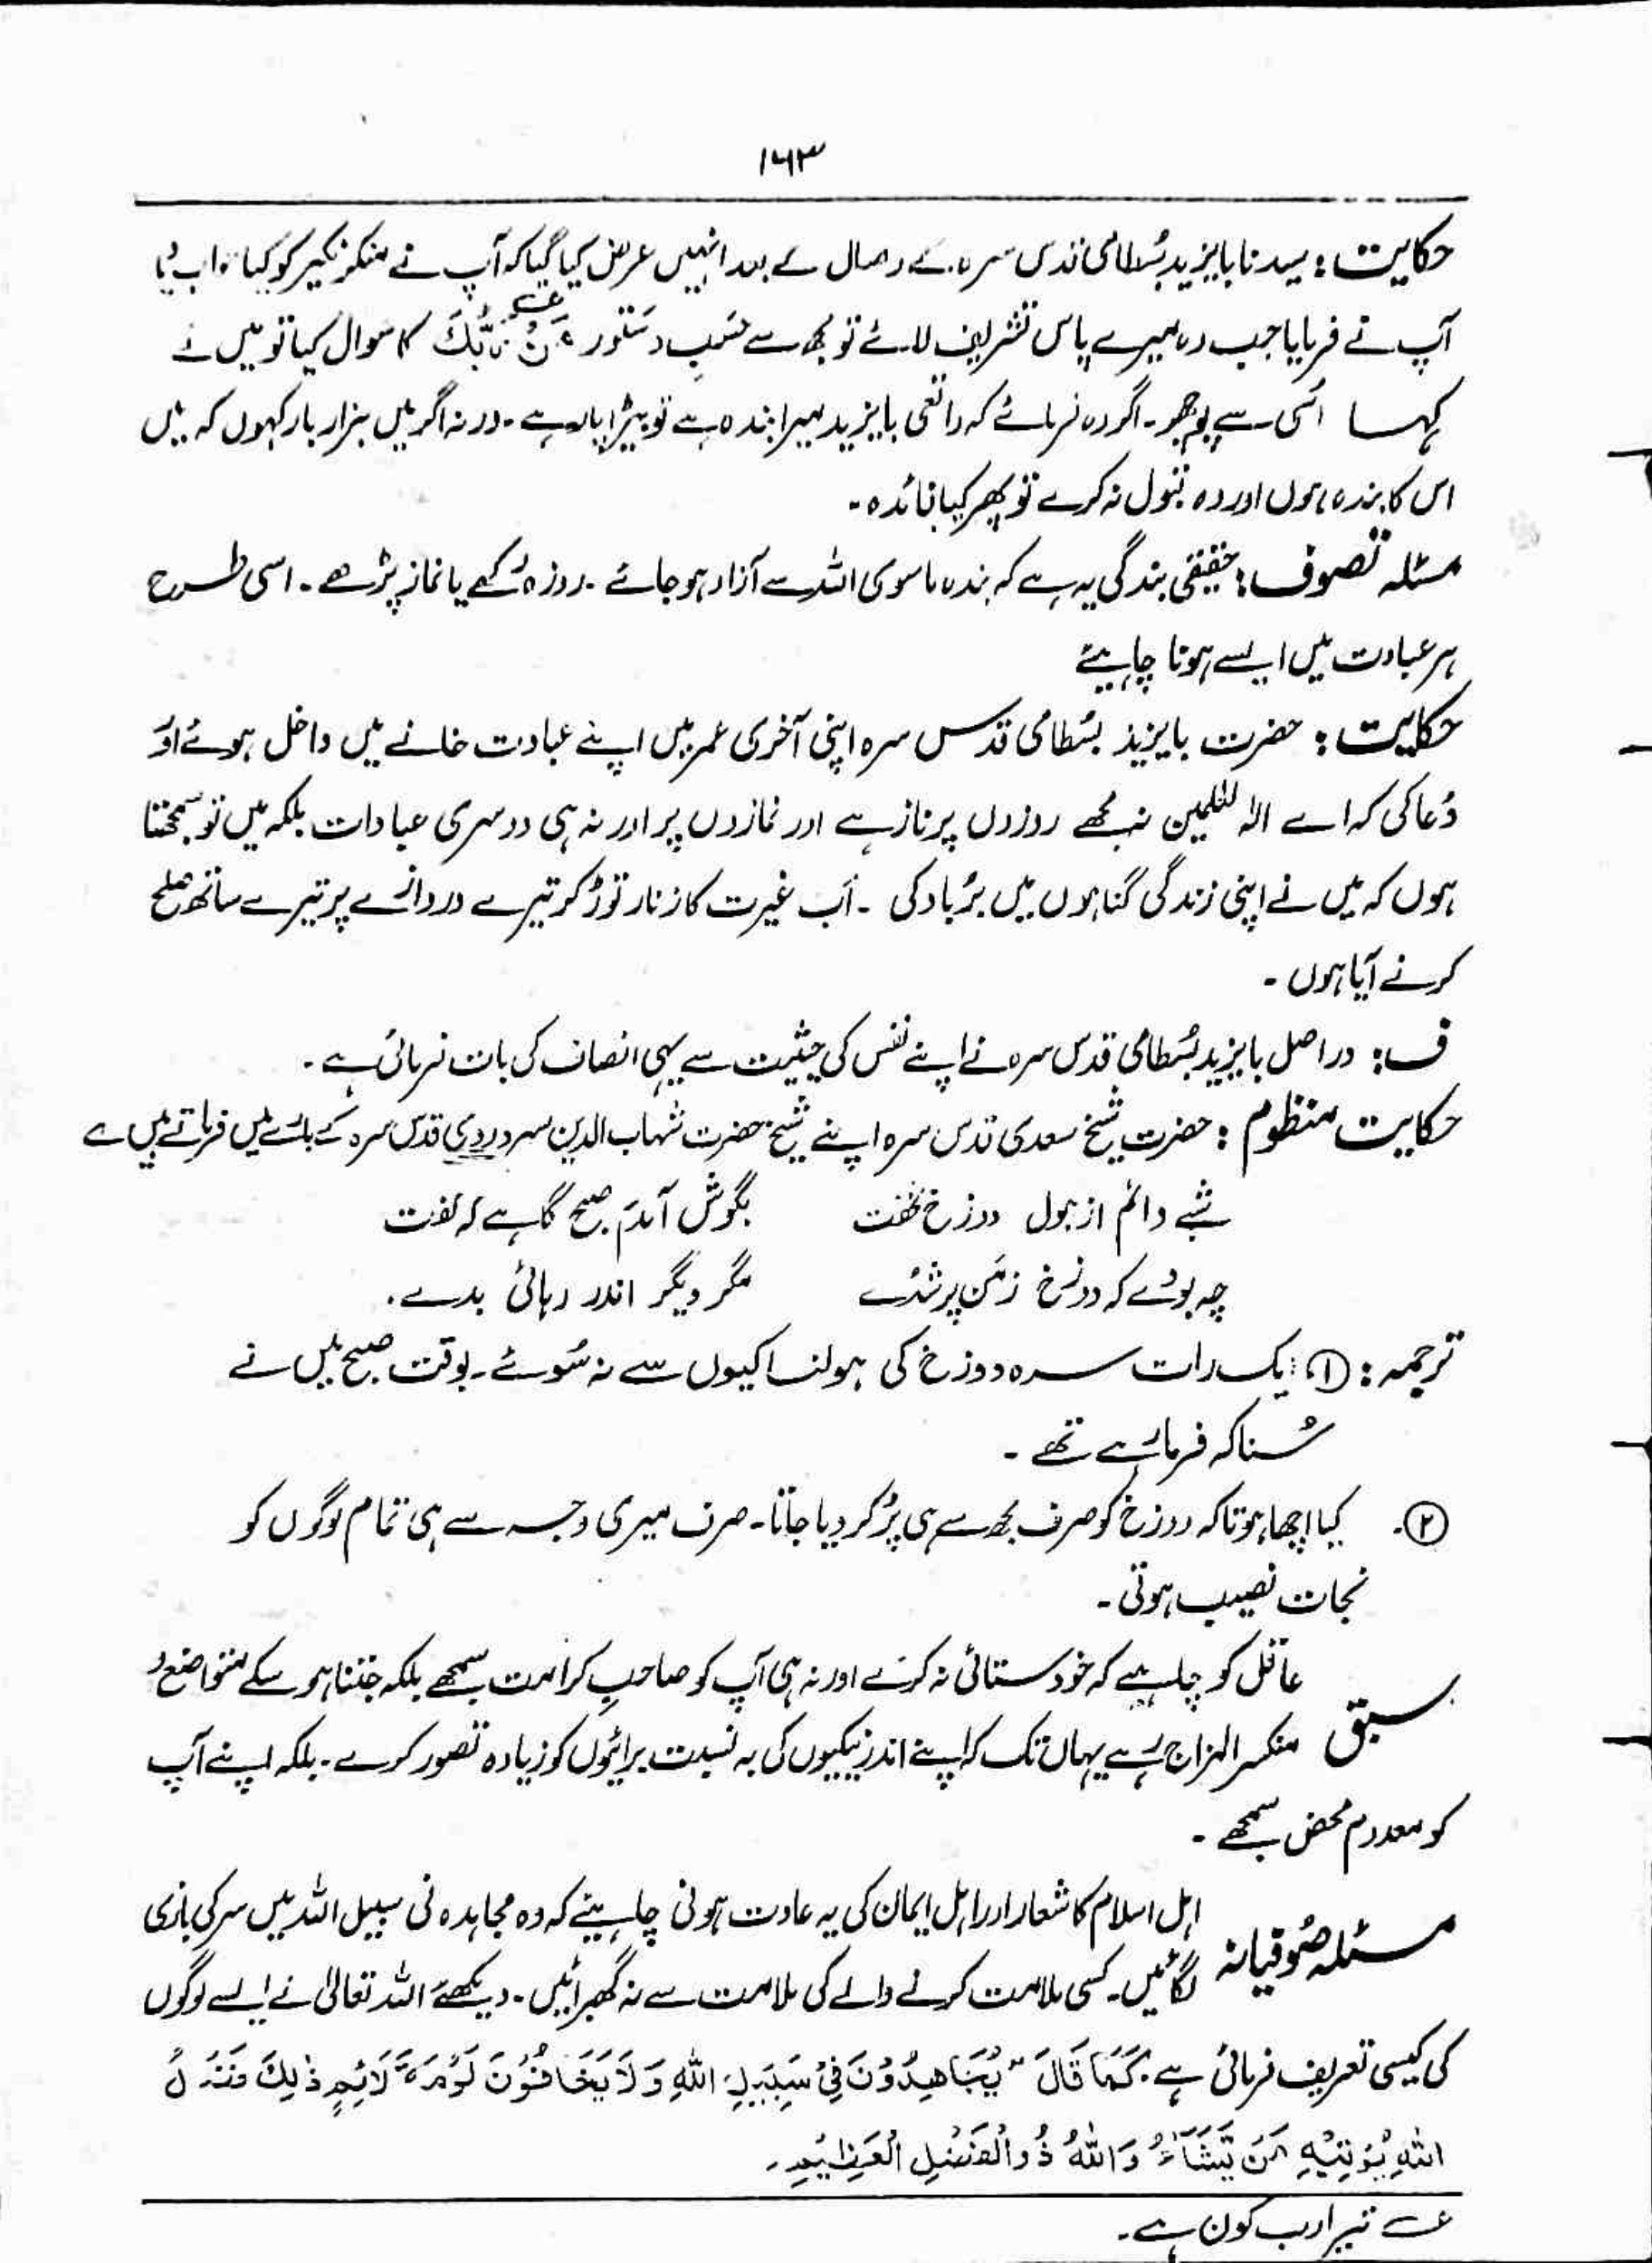 ۱۶۳
حکایت: سیدنا بایزید بسُطامی قدس سرہ کے وصال کے بعد انہیں عرض کیا گیا کہ آپ نے منکر نکیر کو کیا جواب دیا
آپ نے فرمایا جب وہ میرے پاس تشریف لائے تو مجھ سے حسَبِ دستور مَنْ رَّبُّکَ عہ کا سوال کیا تو میں نے
کہا اُسی سے پوچھو۔ اگر وہ فرمائے کہ واقعی بایزید میرا بندہ ہے تو بیڑا پار ہے۔ ورنہ اگر میں ہزار بار کہوں کہ میں
اس کا بندہ ہوں اور وہ قبول نہ کرے تو پھر کیا فائدہ۔
مسئلہ تصوف: حقیقی بندگی یہ ہے کہ بندہ ماسوی اللہ سے آزاد ہو جائے۔ روزہ رکھے یا نماز پڑھے۔ اسی طرح
ہر عبادت میں ایسے ہونا چاہیئے
حکایت: حضرت بایزید بسُطامی قدس سرہ اپنی آخری عمر میں اپنے عبادت خانے میں داخل ہوئے اور
دُعا کی کہ اے الٰہ العٰلمین نہ مجھے روزوں پر ناز ہے اور نمازوں پر اور نہ ہی دوسری عبادات بلکہ میں تو سمجھتا
ہوں کہ میں نے اپنی زندگی گناہوں میں برُباد کی۔ اَب غیرت کا زنار توڑ کر تیرے دروازے پر تیرے ساتھ صلح
کرنے آیا ہوں۔
ف: دراصل بایزید بسُطامی قدس سرہ نے اپنے نفس کی حیثیت سے یہی انصاف کی بات فرمائی ہے۔
حکایت منظوم: حضرت شیخ سعدی قدس سرہ اپنے شیخ حضرت شہاب الدین سہروردی قدس سرہ کے بارے میں فرماتے ہیں ے
شبے دائم از ہول دوزخ نخفت بگوش آمدم صبح گاہے کہ گفت
چہ بودے کہ دوزخ زمَن پر شدے مگر دیگر اندر رہائی بدے.
ترجمہ: ① ایک رات سرہ دوزخ کی ہولناکیوں سے نہ سُوئے۔ بوقت صبح میں نے
سُنا کہ فرما رہے تھے۔
②. کیا اچھا ہوتا کہ دوزخ کو صرف مجھ سے ہی پُر کر دیا جاتا۔ صرف میری وجہ سے ہی تمام لوگوں کو
نجات نصیب ہوتی۔
عاقل کو چاہیے کہ خودستائی نہ کرے اور نہ ہی آپ کو صاحبِ کرامت سمجھے بلکہ جتنا ہو سکے متواضع و
سبق منکسر المزاج رہے یہاں تک کہ اپنے اندر نیکیوں کی بہ نسبت برائیوں کو زیادہ تصور کرے۔ بلکہ اپنے آپ
کو معدوم محض سمجھے۔
اہل اسلام کا شعار اور اہل ایمان کی یہ عادت ہونی چاہیئے کہ وہ مجاہدہ فی سبیل اللہ میں سر کی بازی
مسئلہ صُوفیانہ لگائیں۔ کسی ملامت کرنے والے کی ملامت سے نہ گھبرائیں۔ دیکھئے اللہ تعالیٰ نے ایسے لوگوں
کی کیسی تعریف فرمائی ہے۔ کَمَا قَالَ "یُجَاهِدُوْنَ فِیْ سَبِیْلِ اللهِ وَلَا یَخَافُوْنَ لَوْمَةَ لَائِمٍ ذٰلِكَ فَضْلُ
اللهِ یُؤْتِیْهِ مَنْ یَّشَآءُ وَاللهُ ذُوالْفَضْلِ الْعَظِیْمِ۔
عہ تیرا رب کون ہے۔